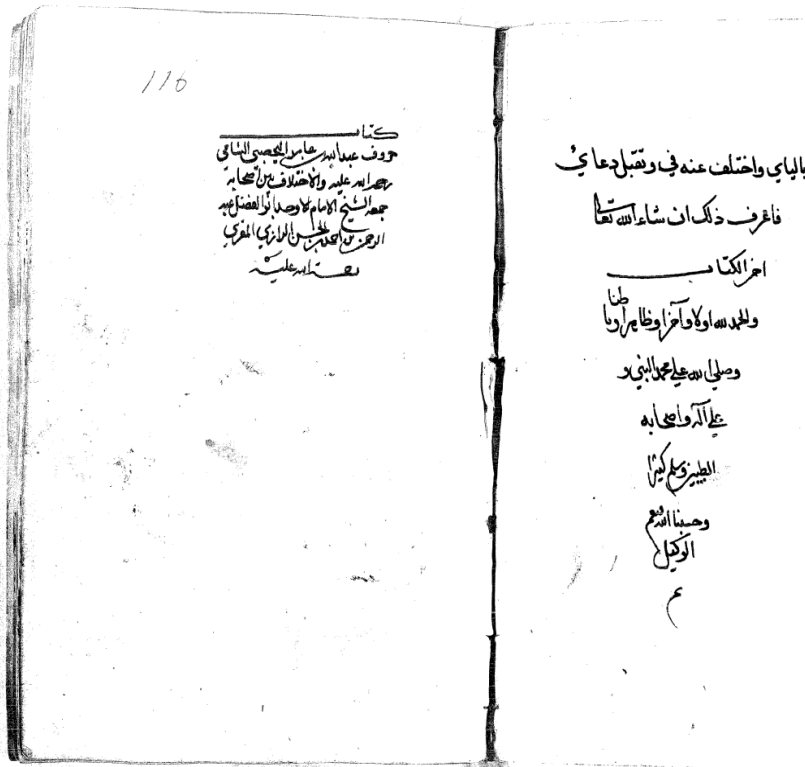 بالياي واختلف عنه في وتقبل دعائ
فاعرف ذلك ان شاء الله تعالى
اخر الكتاب
والحمد لله اولا وآخرا وظاهرا وباطنا
وصلى الله على محمد النبي و
على آله واصحابه
الطيبين وسلم كثيرا
وحسبنا الله ونعم
الوكيل
116
كتاب
حروف عبد الله بن عامر اليحصبي الشامي
رحمة الله عليه والاختلاف بين اصحابه
جمعه الشيخ الامام الاوحد ابو الفضل عبد
الرحمن بن احمد بن الحسن الرازي المقري
رحمة الله عليه